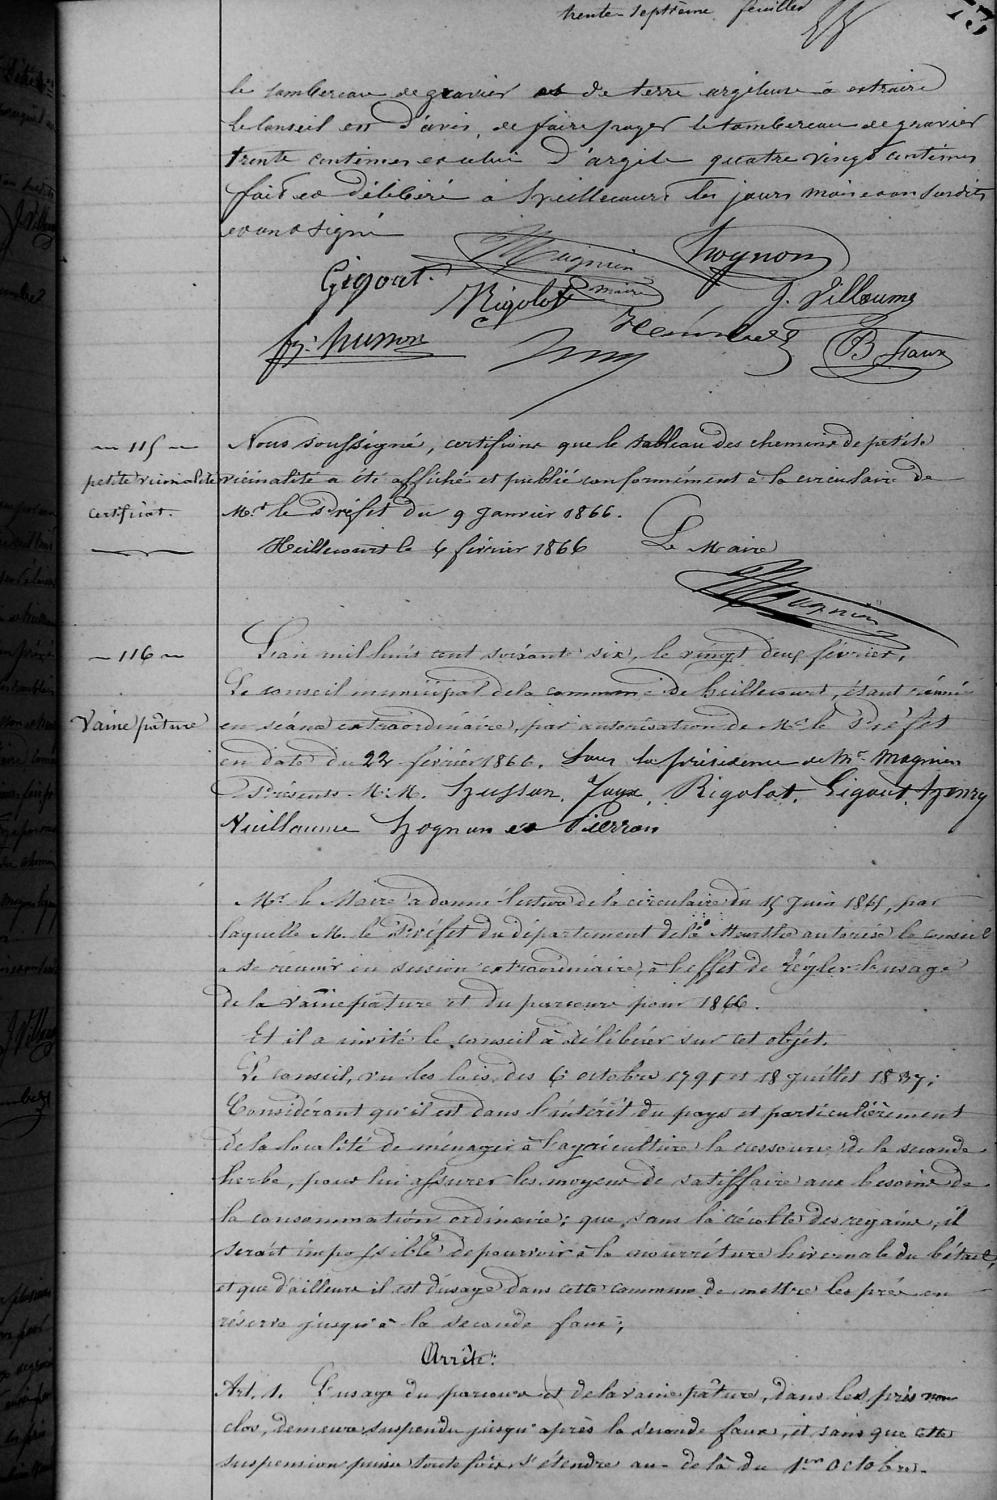 trente-septième feuillet
75
le tombereau de gravier et de terre argileuse à extraire
le Conseil est d'avis, de faire payer le tombereau de gravier
trente centimes et celui d'argile quatre vingt centimes
fait et délibéré à heillecourt les jours mois et an susdits
et ont signé
Magnien Hognon
Gigout. maire
Rigolot J. Villaume
fx. husson B. Faux
~ 115 ~ Nous soussigné, certifions que le tableau des chemins de petite
petite vicinalité vicinalité a été affiché et publié conformément à la circulaire de
certificat. Mr le Préfet du 9 Janvier 1866.
Heillecourt le 6 février 1866 Le Maire
Magnien
~ 116 ~ L'an mil huit cent soixante six, le vingt deux février,
Le conseil municipal de la commune de heillecourt, étant réuni
Vaine pâture en séance extraordinaire, par autorisation de Mr le Préfet
en date du 22 février 1866. Sous la présidence de Mr Magnien
Présents M.M. Husson, Faux, Rigolot, Gigout, Henry
Vuillaume Hognon et Pierron
Mr le Maire a donné lecture de la circulaire du 15 Juin 1865, par
laquelle M. le Préfet du département de la Meurthe autorise le conseil
a se réunir en session extraordinaire, à l'effet de régler l'usage
de la vaine pâture et du parcours pour 1866.
Et il a invité le conseil à délibérer sur cet objet.
Le conseil, vu les lois des 6 octobre 1791 et 18 Juillet 1837;
Considérant qu'il est dans l'intérêt du pays et particulièrement
de la localité de ménager à l'agriculture la ressource de la seconde
herbe, pour lui assurer les moyens de satisfaire aux besoins de
la consommation ordinaire; que, sans la récolte des regains, il
serait impossible de pourvoir à la nourriture hivernale du bétail,
et que d'ailleurs il est d'usage dans cette commune de mettre les prés en
réserve jusqu'à la seconde faux;
Arrête:
Art. 1. L'usage du parcours et de la vaine pâture, dans les prés non
clos, demeure suspendu jusqu'après la seconde faux, et sans que cette
suspension puisse toutefois s'étendre au-delà du 1er octobre.